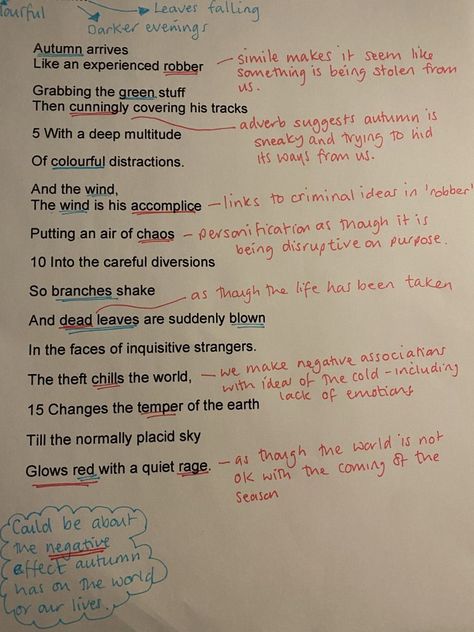 ourful
Leaves falling
Darker evenings
Autumn arrives
Like an experienced robber
- simile makes it seem like
something is being stolen from
us.
Grabbing the green stuff
Then cunningly covering his tracks
adverb suggests autumn is
sneaky and trying to hid
its ways from us.
5 With a deep multitude
Of colourful distractions.
And the wind,
The wind is his accomplice
- links to criminal ideas in 'robber'
Putting an air of chaos
- personification as though it is
being disruptive on purpose.
10 Into the careful diversions
So branches shake
as though the life has been taken
And dead leaves are suddenly blown
In the faces of inquisitive strangers.
The theft chills the world,
- we make negative associations
with idea of the cold - including
lack of emotions
15 Changes the temper of the earth
Till the normally placid sky
Glows red with a quiet rage.
- as though the world is not
OK with the coming of the
season
Could be about
the negative
effect autumn
has on the world
or our lives.